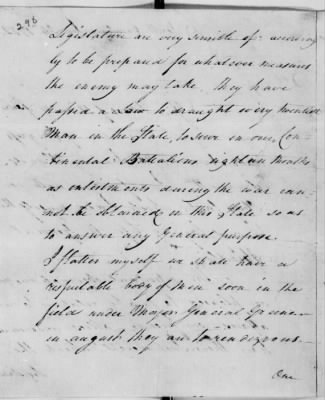 296
Legislature are very sensible of: according
ly to be prepared for whatever measures
the enemy may take, they have
passed a Law to draught every twentieth
Man in the State, to serve in our Con-
tinental Battalions eighteen Months
as enlistments during the war can-
not be obtained in this State so as
to answer any General purpose.
I flatter myself we shall have a
respectable body of Men soon in the
field under Major General Greene
in august they are to rendezvous-
One